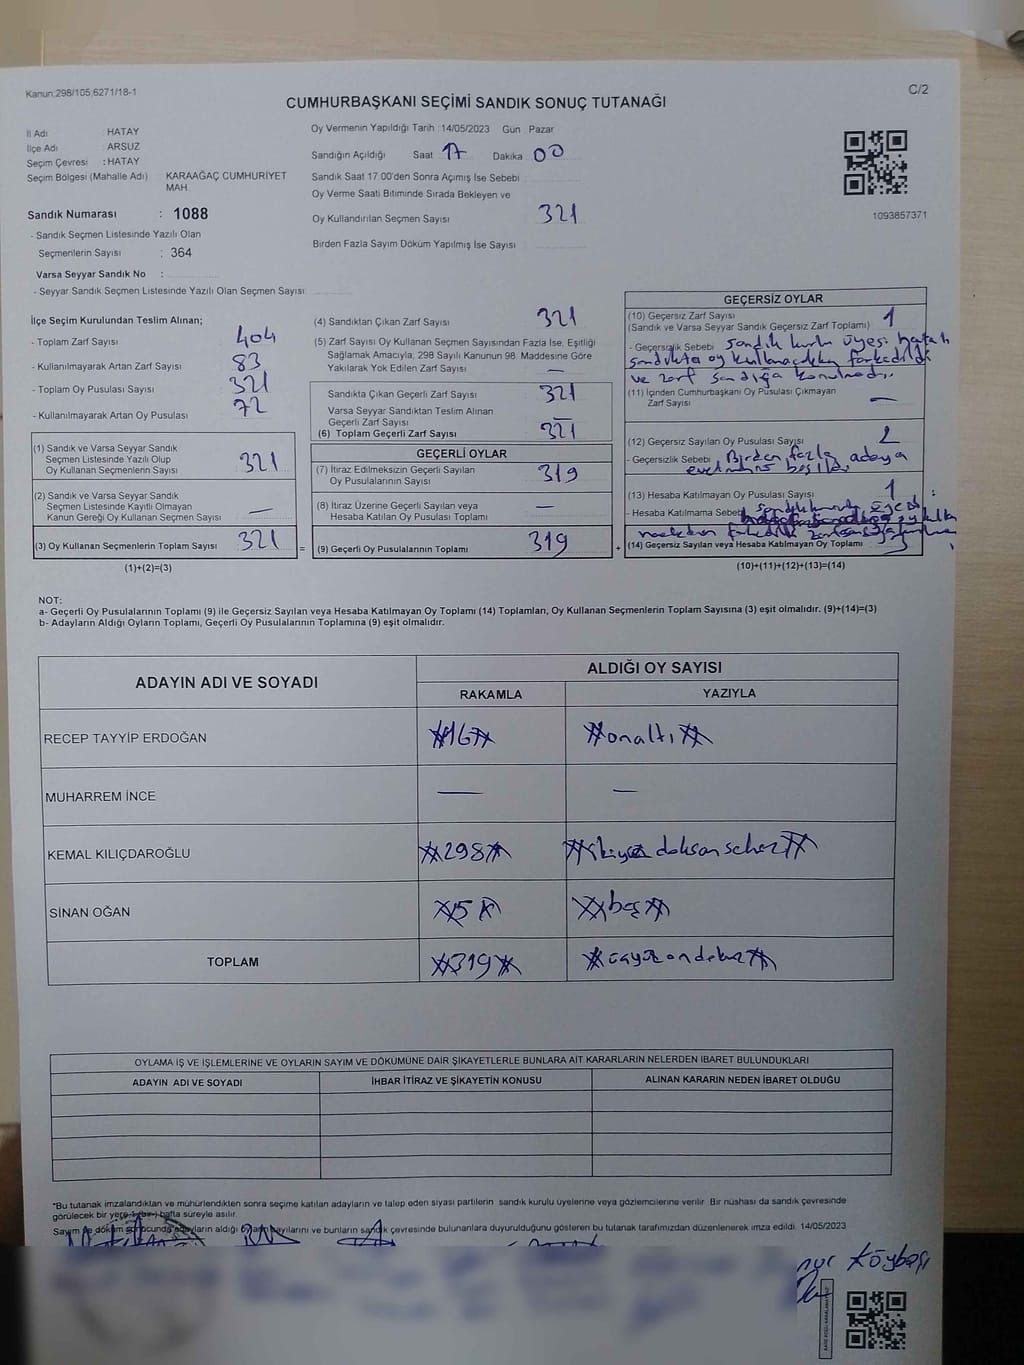 Kanun:298/105;6271/18-1
C/2
CUMHURBAŞKANI SEÇİMİ SANDIK SONUÇ TUTANAĞI
İl Adı : HATAY
İlçe Adı : ARSUZ
Seçim Çevresi : HATAY
Seçim Bölgesi (Mahalle Adı) KARAAĞAÇ CUMHURİYET
MAH.
Sandık Numarası : 1088
- Sandık Seçmen Listesinde Yazılı Olan
Seçmenlerin Sayısı : 364
Varsa Seyyar Sandık No :
- Seyyar Sandık Seçmen Listesinde Yazılı Olan Seçmen Sayısı:
Oy Vermenin Yapıldığı Tarih : 14/05/2023 Gün : Pazar
Sandığın Açıldığı Saat 17 Dakika 00
Sandık Saat 17.00'den Sonra Açımış İse Sebebi
Oy Verme Saati Bitiminde Sırada Bekleyen ve
Oy Kullandırılan Seçmen Sayısı 321
Birden Fazla Sayım Döküm Yapılmış İse Sayısı
1093857371
İlçe Seçim Kurulundan Teslim Alınan;
- Toplam Zarf Sayısı 404
- Kullanılmayarak Artan Zarf Sayısı 83
- Toplam Oy Pusulası Sayısı 321
- Kullanılmayarak Artan Oy Pusulası 72
(1) Sandık ve Varsa Seyyar Sandık
Seçmen Listesinde Yazılı Olup
Oy Kullanan Seçmenlerin Sayısı 321
(2) Sandık ve Varsa Seyyar Sandık
Seçmen Listesinde Kayıtlı Olmayan
Kanun Gereği Oy Kullanan Seçmen Sayısı —
(3) Oy Kullanan Seçmenlerin Toplam Sayısı 321 =
(1)+(2)=(3)
(4) Sandıktan Çıkan Zarf Sayısı 321
(5) Zarf Sayısı Oy Kullanan Seçmen Sayısından Fazla İse, Eşitliği
Sağlamak Amacıyla; 298 Sayılı Kanunun 98. Maddesine Göre
Yakılarak Yok Edilen Zarf Sayısı —
Sandıkta Çıkan Geçerli Zarf Sayısı 321
Varsa Seyyar Sandıktan Teslim Alınan
Geçerli Zarf Sayısı —
(6) Toplam Geçerli Zarf Sayısı 321
GEÇERLİ OYLAR
(7) İtiraz Edilmeksizin Geçerli Sayılan
Oy Pusulalarının Sayısı 319
(8) İtiraz Üzerine Geçerli Sayılan veya
Hesaba Katılan Oy Pusulası Toplamı —
(9) Geçerli Oy Pusulalarının Toplamı 319 +
GEÇERSİZ OYLAR
(10) Geçersiz Zarf Sayısı 1
(Sandık ve Varsa Seyyar Sandık Geçersiz Zarf Toplamı)
- Geçersizlik Sebebi sandık kurulu üyesi hatalı
sandıkta oy kullanacakken farkedildi
ve zarf sandığa konulmadı.
(11) İçinden Cumhurbaşkanı Oy Pusulası Çıkmayan
Zarf Sayısı —
(12) Geçersiz Sayılan Oy Pusulası Sayısı 2
- Geçersizlik Sebebi Birden fazla adaya
basıldı
(13) Hesaba Katılmayan Oy Pusulası Sayısı 1
- Hesaba Katılmama Sebebi
(14) Geçersiz Sayılan veya Hesaba Katılmayan Oy Toplamı
(10)+(11)+(12)+(13)=(14)
NOT:
a- Geçerli Oy Pusulalarının Toplamı (9) ile Geçersiz Sayılan veya Hesaba Katılmayan Oy Toplamı (14) Toplamları, Oy Kullanan Seçmenlerin Toplam Sayısına (3) eşit olmalıdır. (9)+(14)=(3)
b- Adayların Aldığı Oyların Toplamı, Geçerli Oy Pusulalarının Toplamına (9) eşit olmalıdır.
ADAYIN ADI VE SOYADI ALDIĞI OY SAYISI
RAKAMLA YAZIYLA
RECEP TAYYİP ERDOĞAN #16# #onaltı#
MUHARREM İNCE — —
KEMAL KILIÇDAROĞLU #298# #ikiyüz doksan sekiz#
SİNAN OĞAN #5# #beş#
TOPLAM #319# #üçyüz ondokuz#
OYLAMA İŞ VE İŞLEMLERİNE VE OYLARIN SAYIM VE DÖKÜMÜNE DAİR ŞİKAYETLERLE BUNLARA AİT KARARLARIN NELERDEN İBARET BULUNDUKLARI
ADAYIN ADI VE SOYADI İHBAR İTİRAZ VE ŞİKAYETİN KONUSU ALINAN KARARIN NEDEN İBARET OLDUĞU
*Bu tutanak imzalandıktan ve mühürlendikten sonra seçime katılan adayların ve talep eden siyasi partilerin sandık kurulu üyelerine veya gözlemcilerine verilir. Bir nüshası da sandık çevresinde
görülecek bir yere 1 (bir) hafta süreyle asılır.
Sayım ve döküm sonucunda adayların aldığı oyların sayılarını ve bunların sandık çevresinde bulunanlara duyurulduğunu gösteren bu tutanak tarafımızdan düzenlenerek imza edildi. 14/05/2023
Köybaşı